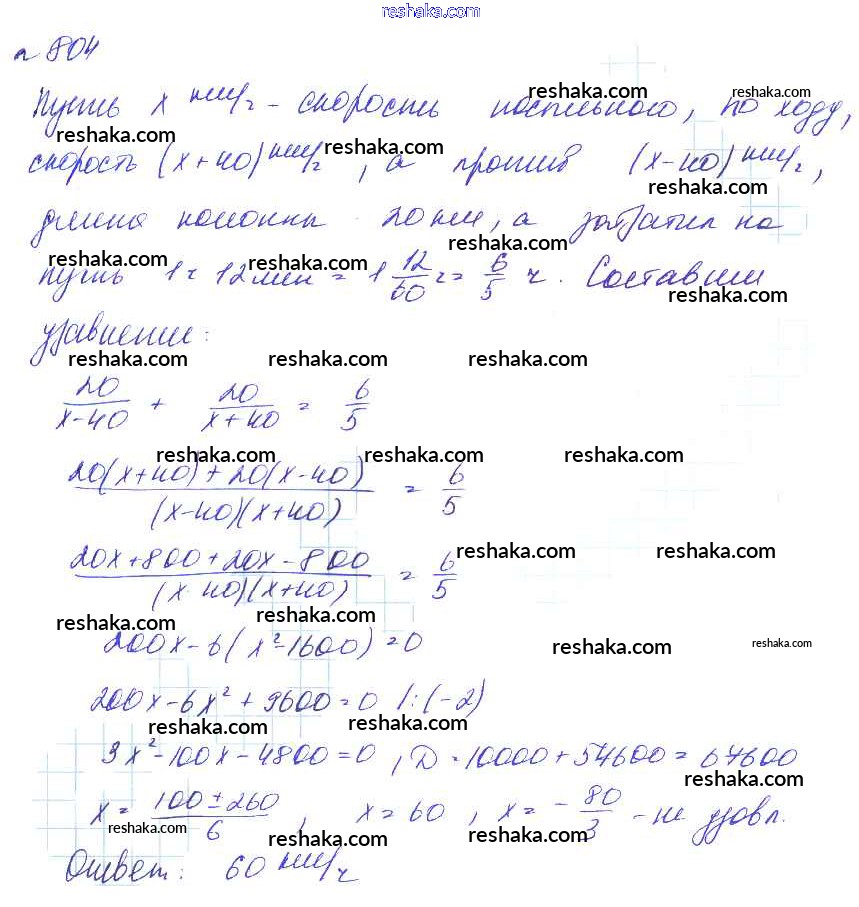 reshaka.com
n 804
reshaka.com reshaka.com
Пусть x км/ч - скорость посыльного, по ходу,
reshaka.com reshaka.com
скорость (x+40) км/ч, а против (x-40) км/ч,
reshaka.com
длина колонны 20 км, а затратил на
reshaka.com reshaka.com reshaka.com
путь 1ч 12мин = 1 12/60 ч = 6/5 ч. Составим
reshaka.com
уравнение:
reshaka.com reshaka.com reshaka.com
20/(x-40) + 20/(x+40) = 6/5
reshaka.com reshaka.com reshaka.com
(20(x+40)+20(x-40))/((x-40)(x+40)) = 6/5
reshaka.com reshaka.com
(20x+800+20x-800)/((x 40)(x+40)) = 6/5
reshaka.com reshaka.com
200x-6(x²-1600)=0
reshaka.com reshaka.com
200x-6x²+9600=0 /:(-2)
reshaka.com reshaka.com
3x²-100x-4800=0, D=10000+57600=67600
reshaka.com
x = (100±260)/6, x=60, x= -80/3 - не удовл.
reshaka.com reshaka.com reshaka.com
Ответ: 60 км/ч